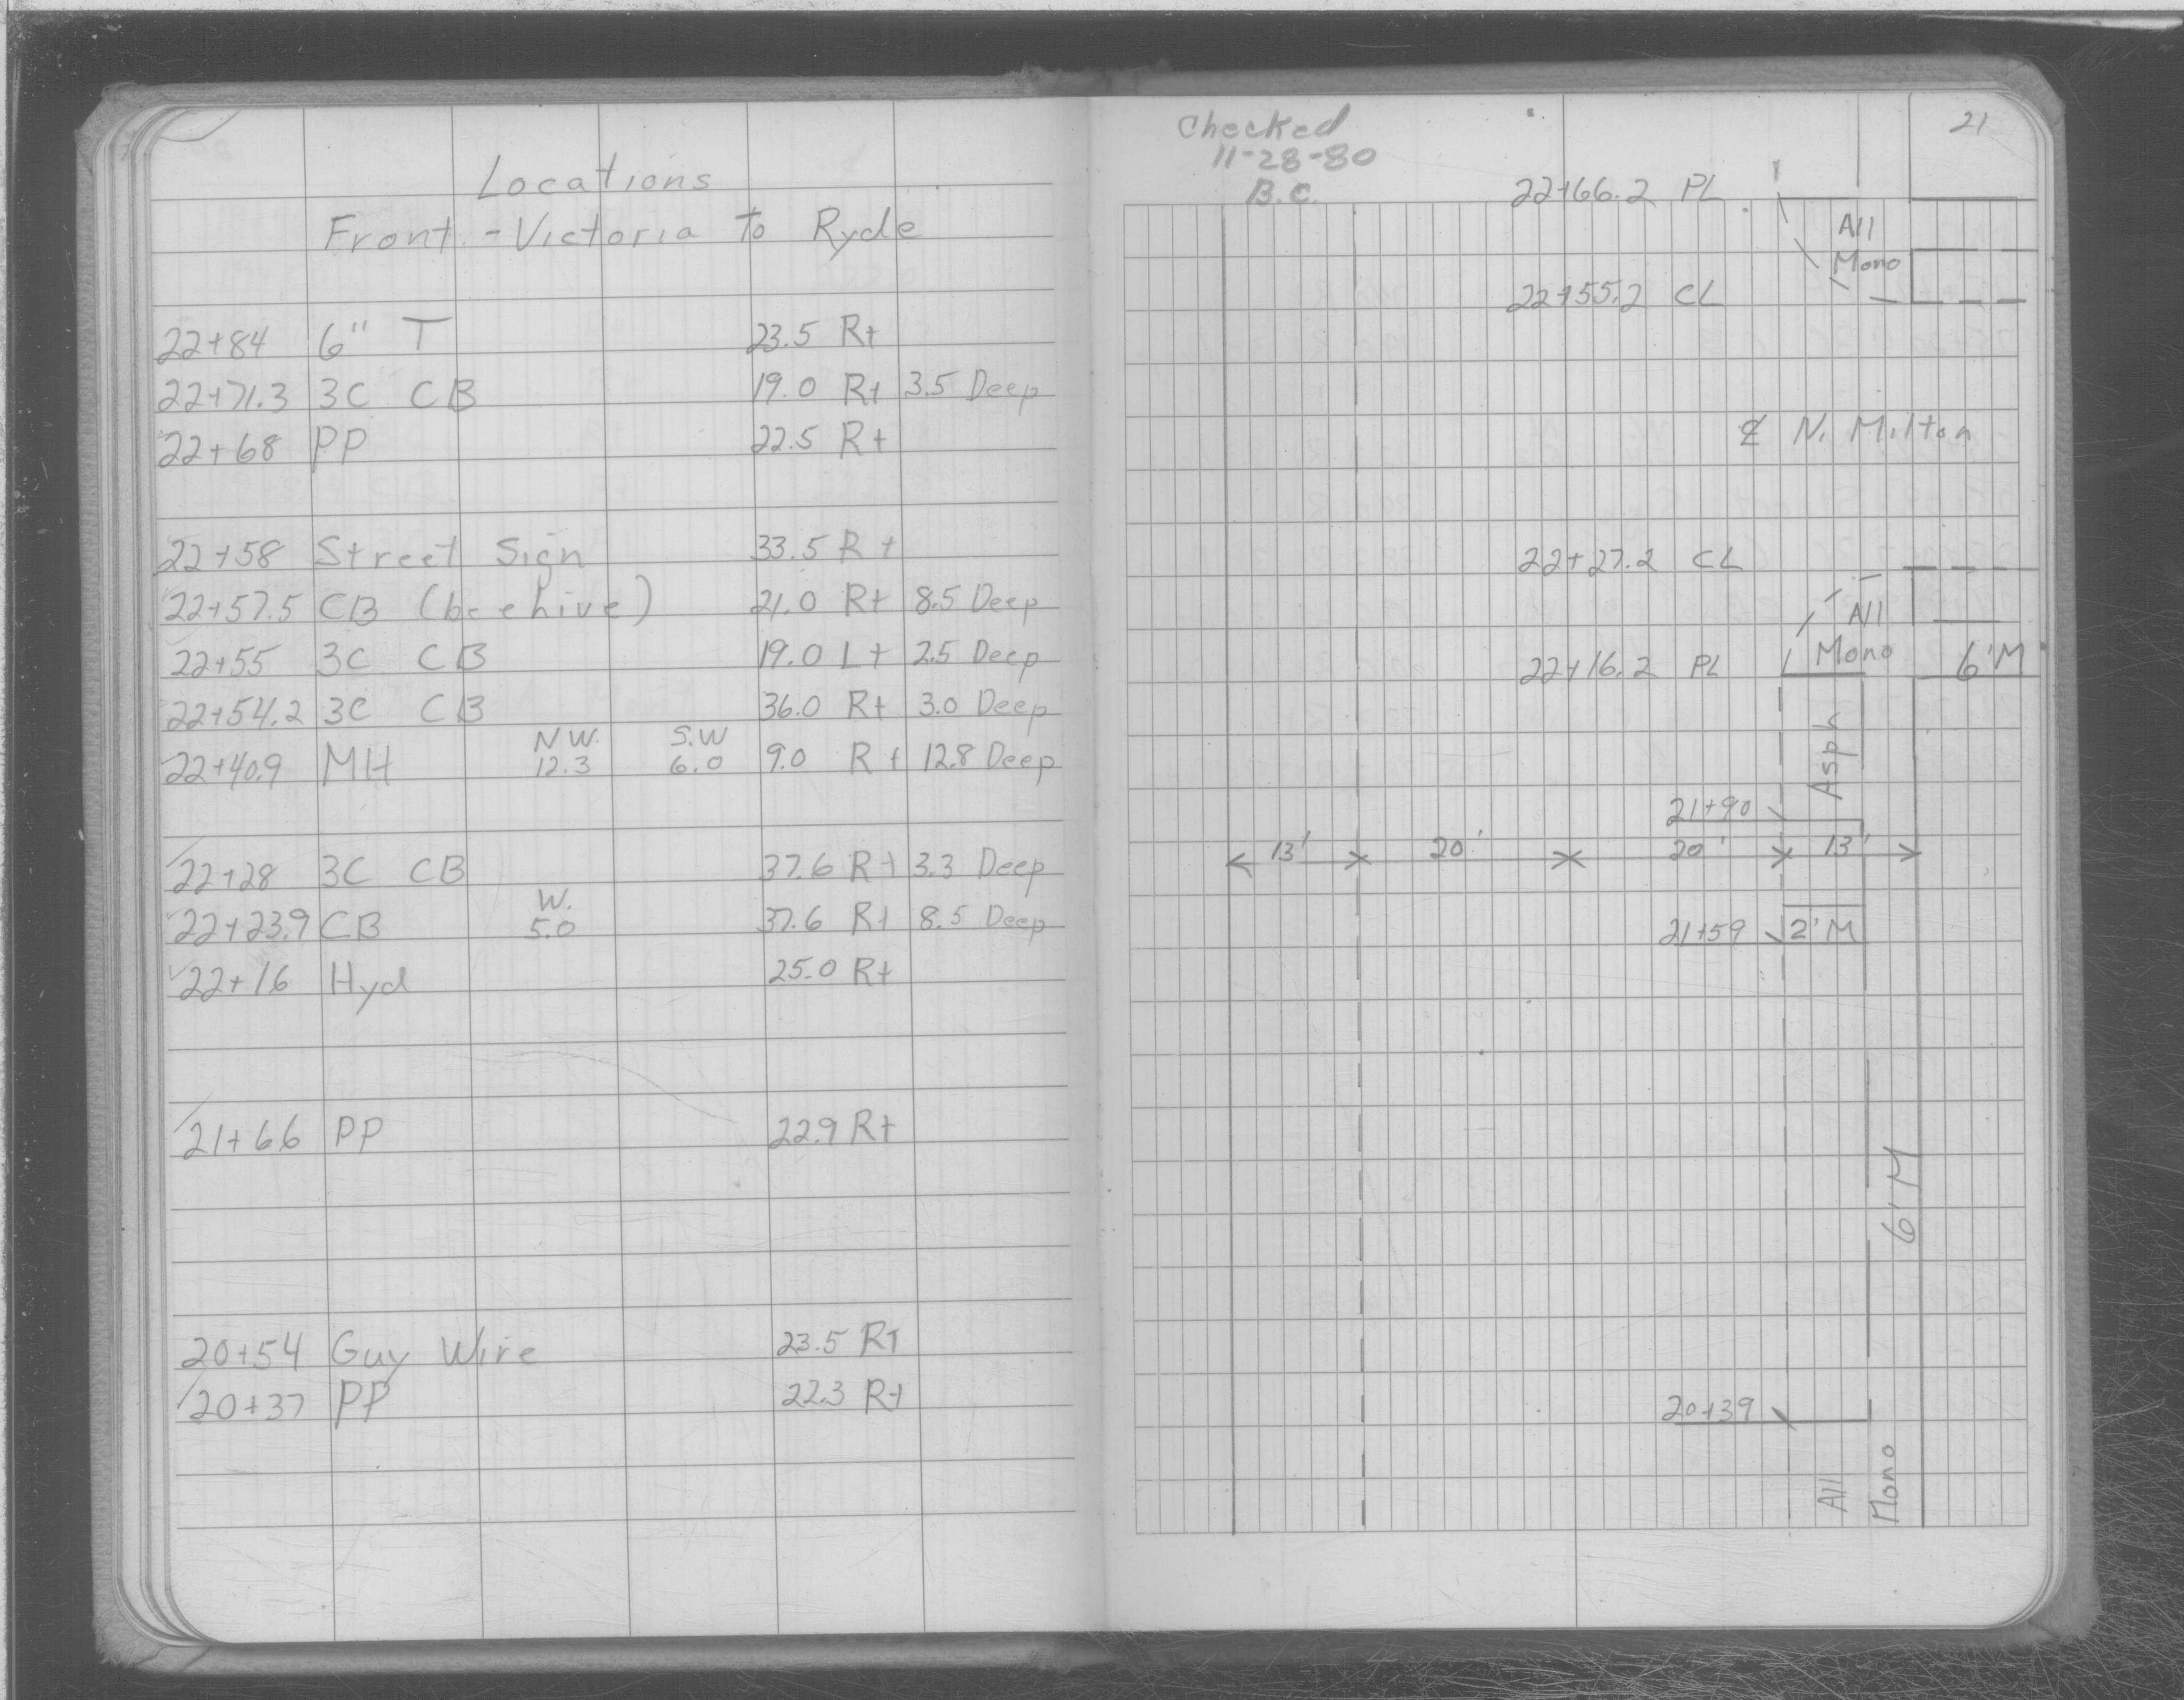 Locations
Front - Victoria To Ryde
22+84 6" T 23.5 Rt
22+71.3 3C CB 19.0 Rt 3.5 Deep
22+68 PP 22.5 Rt
22+58 Street Sign 33.5 Rt
22+57.5 CB (beehive) 21.0 Rt 8.5 Deep
22+55 3C CB 19.0 Lt 2.5 Deep
22+54.2 3C CB 36.0 Rt 3.0 Deep
N.W. S.W
22+40.9 MH 12.3 6.0 9.0 Rt 12.8 Deep
22+28 3C CB 37.6 Rt 3.3 Deep
W.
22+23.9 CB 5.0 37.6 Rt 8.5 Deep
22+16 Hyd 25.0 Rt
21+66 PP 22.9 Rt
20+54 Guy Wire 23.5 Rt
20+37 PP 22.3 Rt
21
Checked
11-28-80
B.C.
22+66.2 PL
All
Mono
22+55.2 CL
℄ N. Milton
22+27.2 CL
All
Mono
22+16.2 PL
6'M
Asph
21+90
13' 20' 20' 13'
21+59 2'M
6'M
20+39
All
Mono